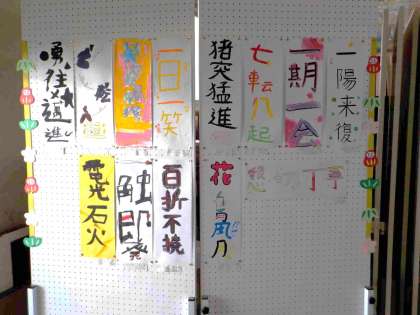 一陽来復
一期一会
七転八起
猪突猛進
一日一笑
勇往邁進
花鳥風月
百折不撓
一触即発
電光石火